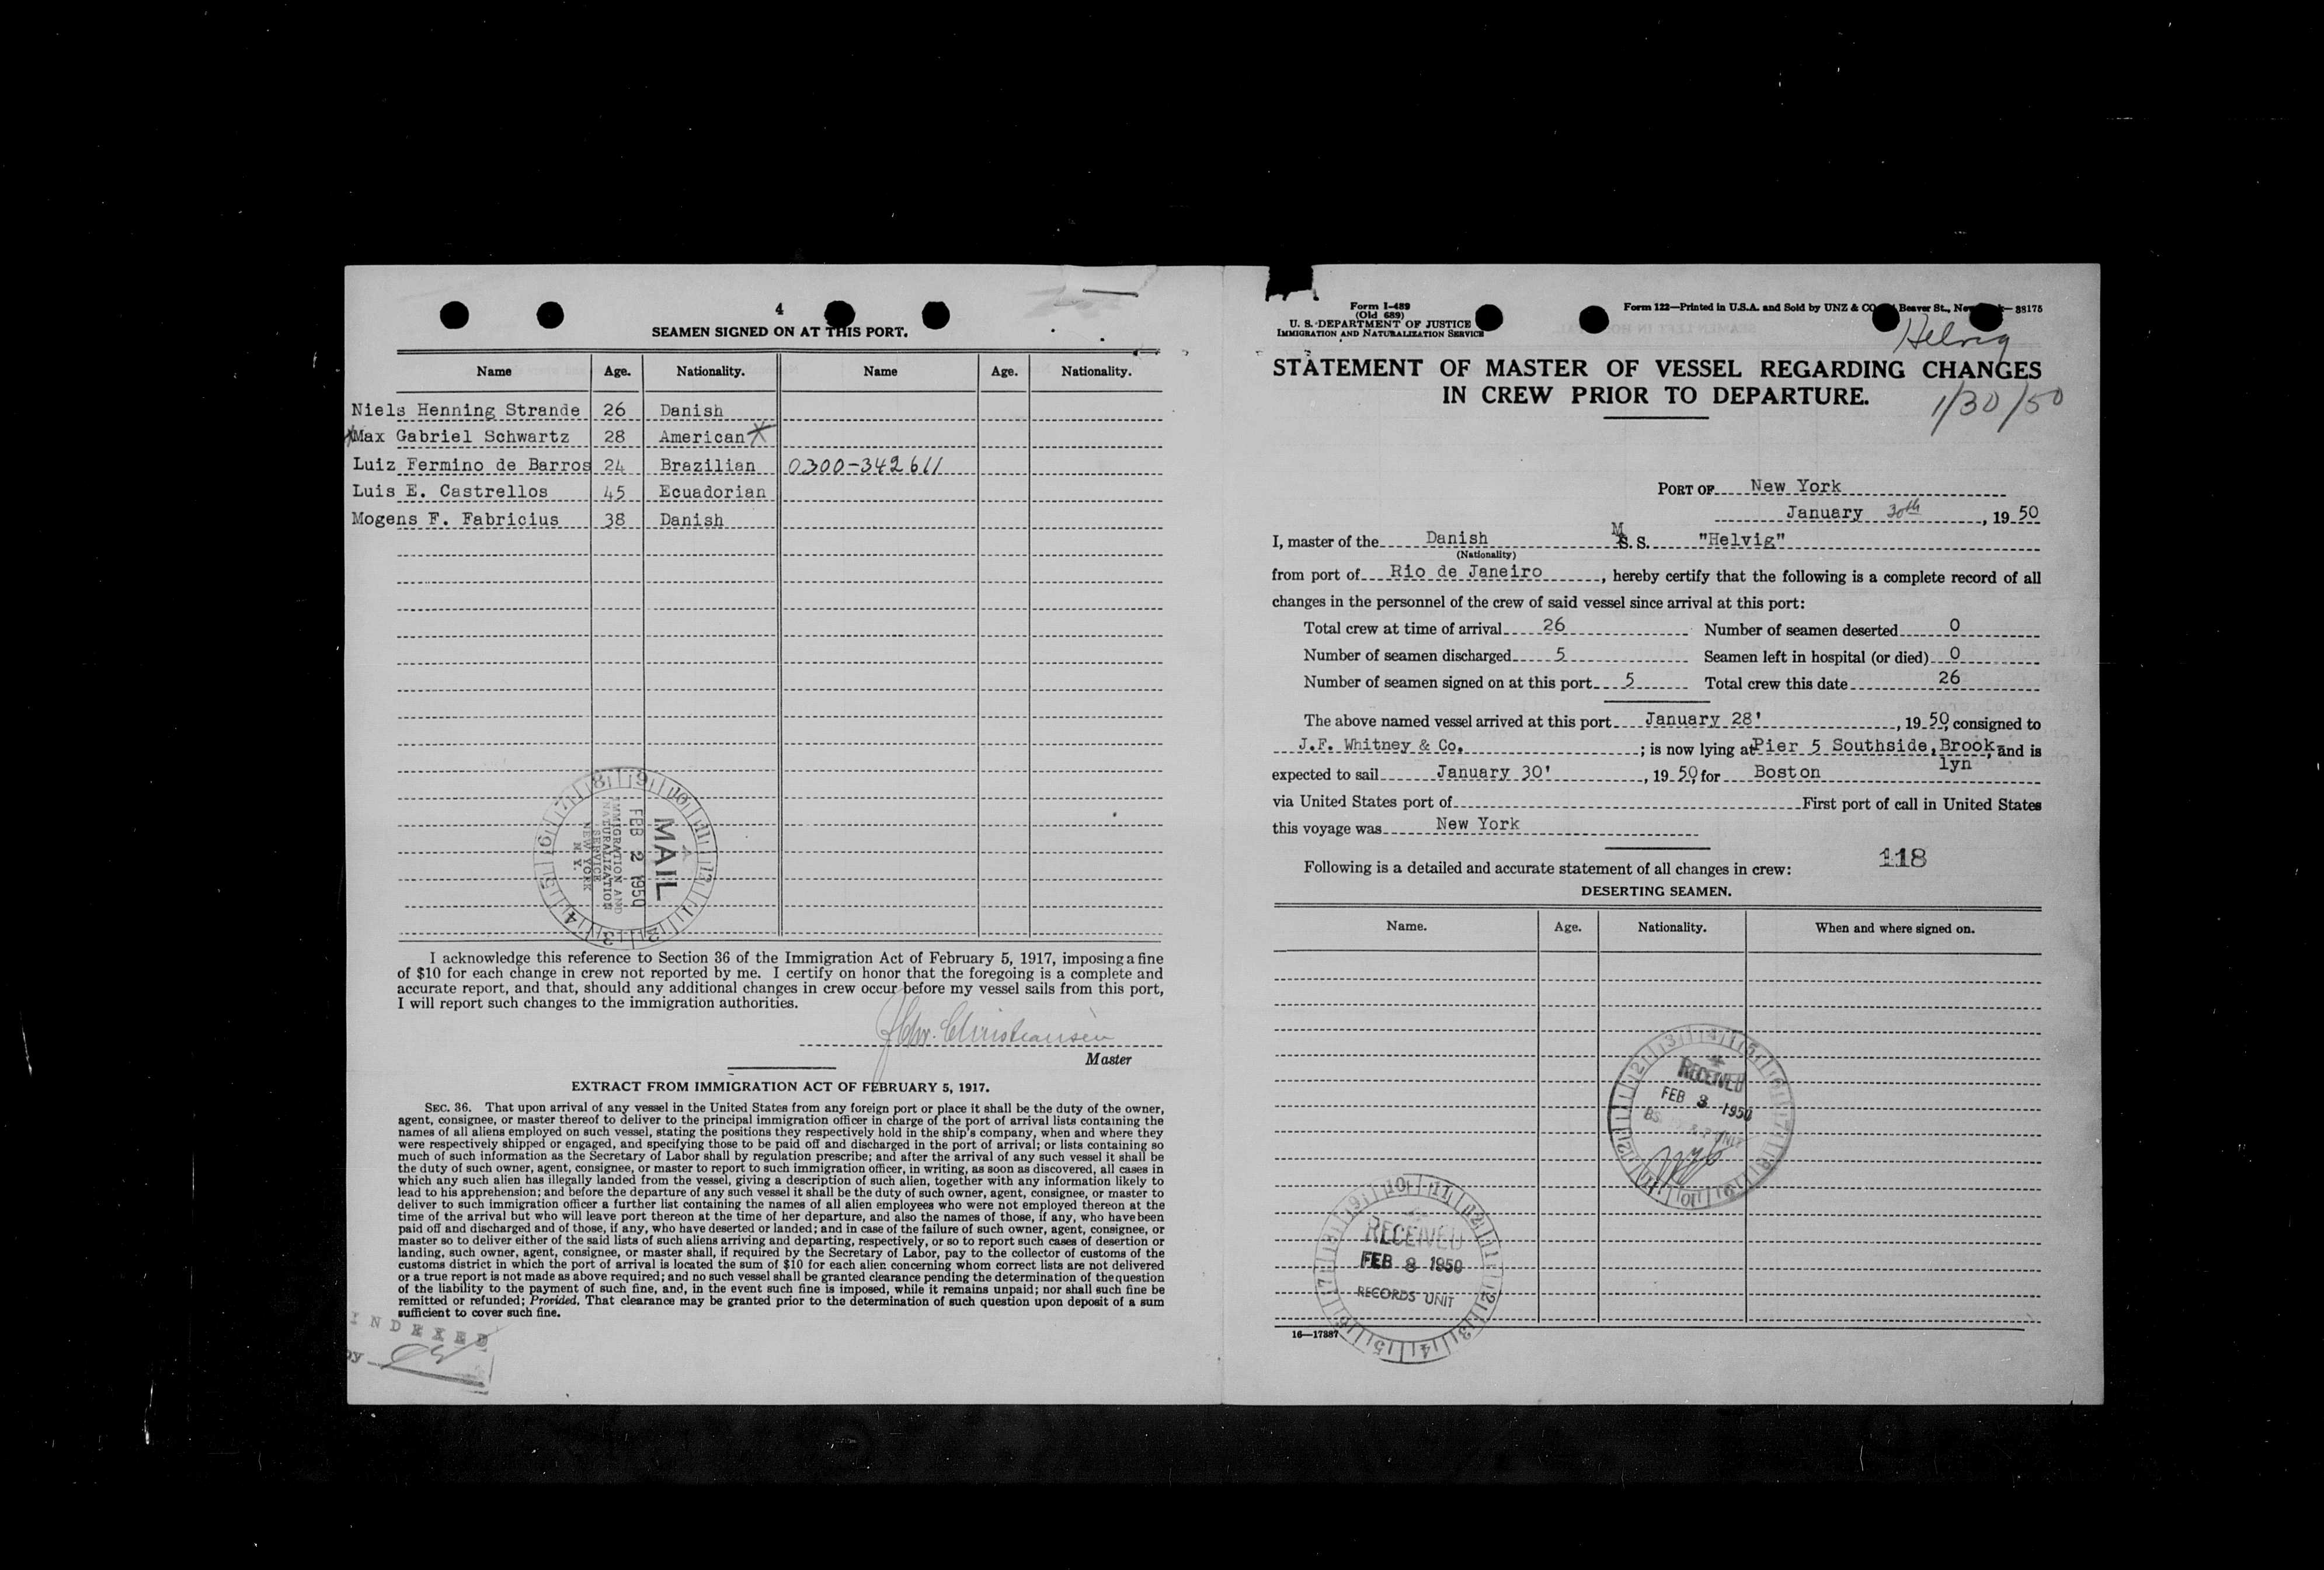 4
SEAMEN SIGNED ON AT THIS PORT.
Name Age. Nationality. Name Age. Nationality.
Niels Henning Strande 26 Danish
X Max Gabriel Schwartz 28 American X
Luiz Fermino de Barros 24 Brazilian 0300-342611
Luis E. Castrellos 45 Ecuadorian
Mogens F. Fabricius 38 Danish
MAIL
FEB 2 1950
IMMIGRATION AND
NATURALIZATION
SERVICE
NEW YORK
N. Y.
I acknowledge this reference to Section 36 of the Immigration Act of February 5, 1917, imposing a fine
of $10 for each change in crew not reported by me. I certify on honor that the foregoing is a complete and
accurate report, and that, should any additional changes in crew occur before my vessel sails from this port,
I will report such changes to the immigration authorities.
Chr. Christiansen
Master
EXTRACT FROM IMMIGRATION ACT OF FEBRUARY 5, 1917.
SEC. 36. That upon arrival of any vessel in the United States from any foreign port or place it shall be the duty of the owner,
agent, consignee, or master thereof to deliver to the principal immigration officer in charge of the port of arrival lists containing the
names of all aliens employed on such vessel, stating the positions they respectively hold in the ship's company, when and where they
were respectively shipped or engaged, and specifying those to be paid off and discharged in the port of arrival; or lists containing so
much of such information as the Secretary of Labor shall by regulation prescribe; and after the arrival of any such vessel it shall be
the duty of such owner, agent, consignee, or master to report to such immigration officer, in writing, as soon as discovered, all cases in
which any such alien has illegally landed from the vessel, giving a description of such alien, together with any information likely to
lead to his apprehension; and before the departure of any such vessel it shall be the duty of such owner, agent, consignee, or master to
deliver to such immigration officer a further list containing the names of all alien employees who were not employed thereon at the
time of the arrival but who will leave port thereon at the time of her departure, and also the names of those, if any, who have been
paid off and discharged and of those, if any, who have deserted or landed; and in case of the failure of such owner, agent, consignee, or
master so to deliver either of the said lists of such aliens arriving and departing, respectively, or so to report such cases of desertion or
landing, such owner, agent, consignee, or master shall, if required by the Secretary of Labor, pay to the collector of customs of the
customs district in which the port of arrival is located the sum of $10 for each alien concerning whom correct lists are not delivered
or a true report is not made as above required; and no such vessel shall be granted clearance pending the determination of the question
of the liability to the payment of such fine, and, in the event such fine is imposed, while it remains unpaid; nor shall such fine be
remitted or refunded; Provided, That clearance may be granted prior to the determination of such question upon deposit of a sum
sufficient to cover such fine.
INDEXED
by
Form I-489
(Old 689)
U. S. DEPARTMENT OF JUSTICE
IMMIGRATION AND NATURALIZATION SERVICE
Form 122—Printed in U.S.A. and Sold by UNZ & CO Beaver St., New —38175
Helvig
STATEMENT OF MASTER OF VESSEL REGARDING CHANGES
IN CREW PRIOR TO DEPARTURE.
1/30/50
PORT OF New York
January 30th, 1950
I, master of the Danish M S. S. "Helvig"
(Nationality)
from port of Rio de Janeiro, hereby certify that the following is a complete record of all
changes in the personnel of the crew of said vessel since arrival at this port:
Total crew at time of arrival 26 Number of seamen deserted 0
Number of seamen discharged 5 Seamen left in hospital (or died) 0
Number of seamen signed on at this port 5 Total crew this date 26
The above named vessel arrived at this port January 28', 1950, consigned to
J.F. Whitney & Co. ; is now lying at Pier 5 Southside, Brook, and is
lyn
expected to sail January 30', 1950, for Boston
via United States port of First port of call in United States
this voyage was New York
Following is a detailed and accurate statement of all changes in crew:
118
DESERTING SEAMEN.
Name. Age. Nationality. When and where signed on.
RECEIVED
FEB 3 1950
RECEIVED
FEB 8 1950
RECORDS UNIT
16—17887